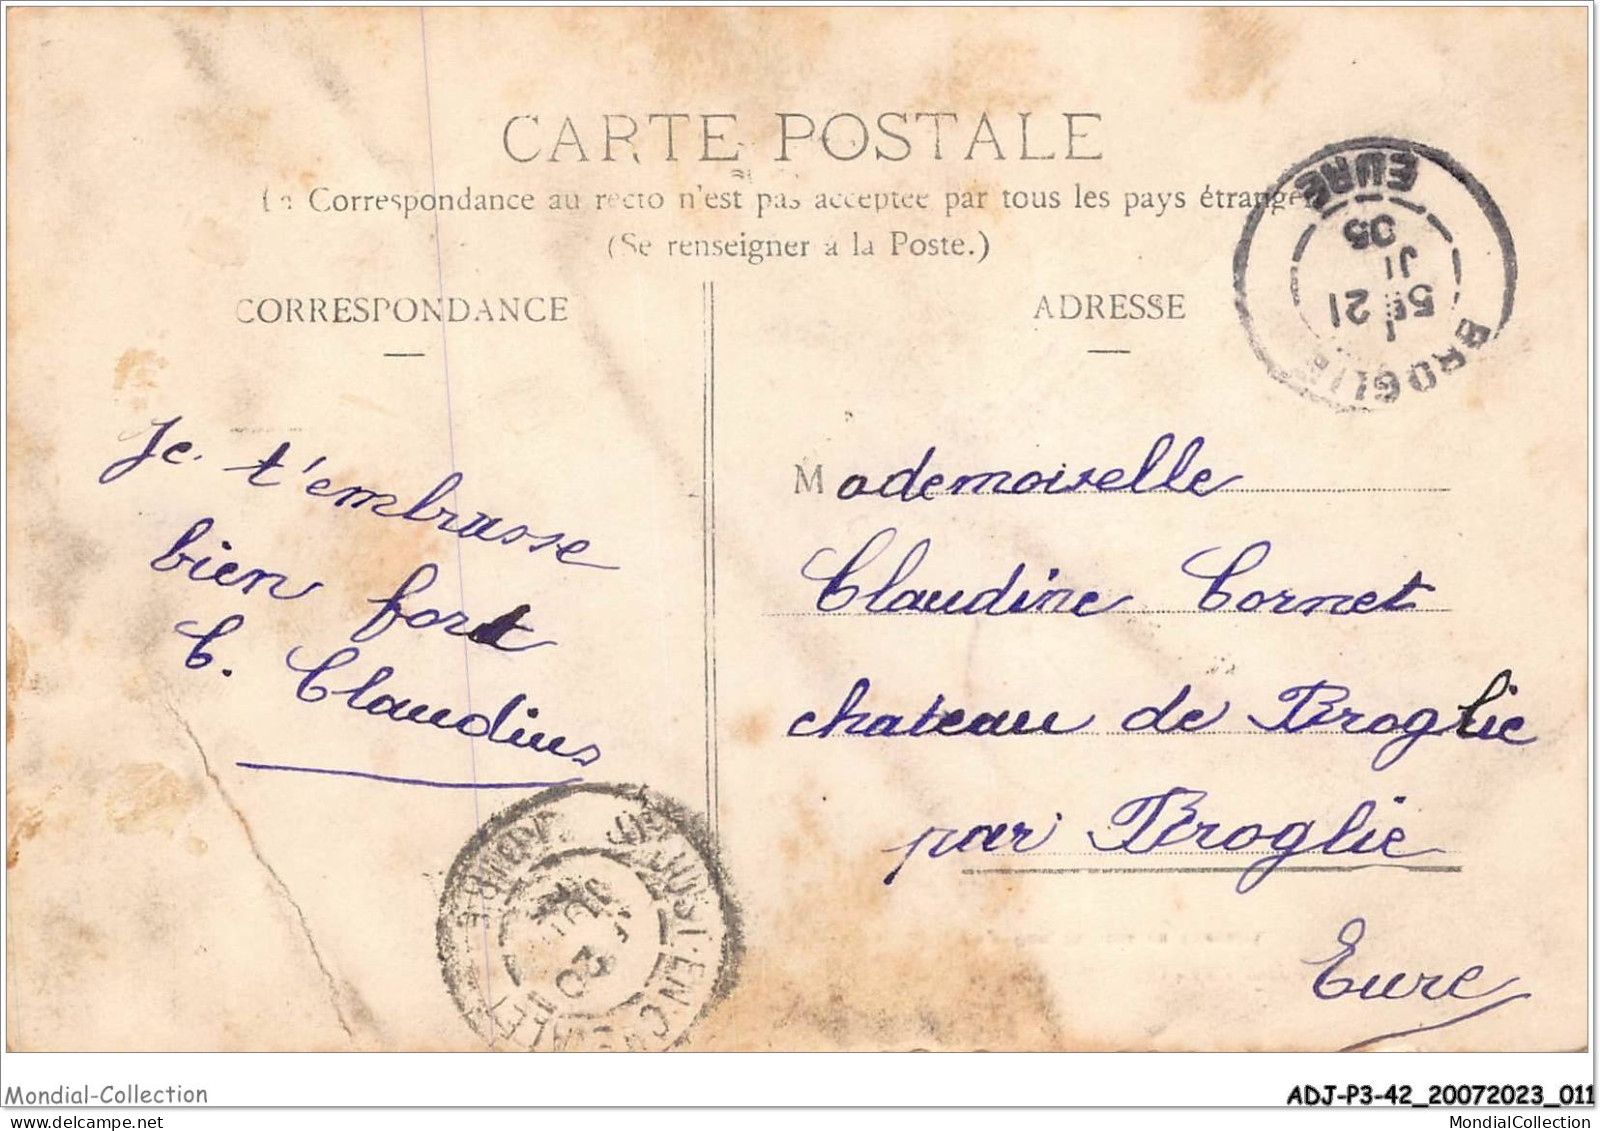 CARTE POSTALE
La Correspondance au recto n'est pas acceptée par tous les pays étrangers
(Se renseigner à la Poste.)
CORRESPONDANCE
ADRESSE
EURE
05
JI
5E 21
BROGLIE
Je t'embrasse
bien fort
C. Claudius
Mademoiselle
Claudine Cornet
chateau de Broglie
par Broglie
Eure
ST JUST-EN-CHEVALET
20
Mondial-Collection
ADJ-P3-42_20072023_011
www.delcampe.net
MondialCollection